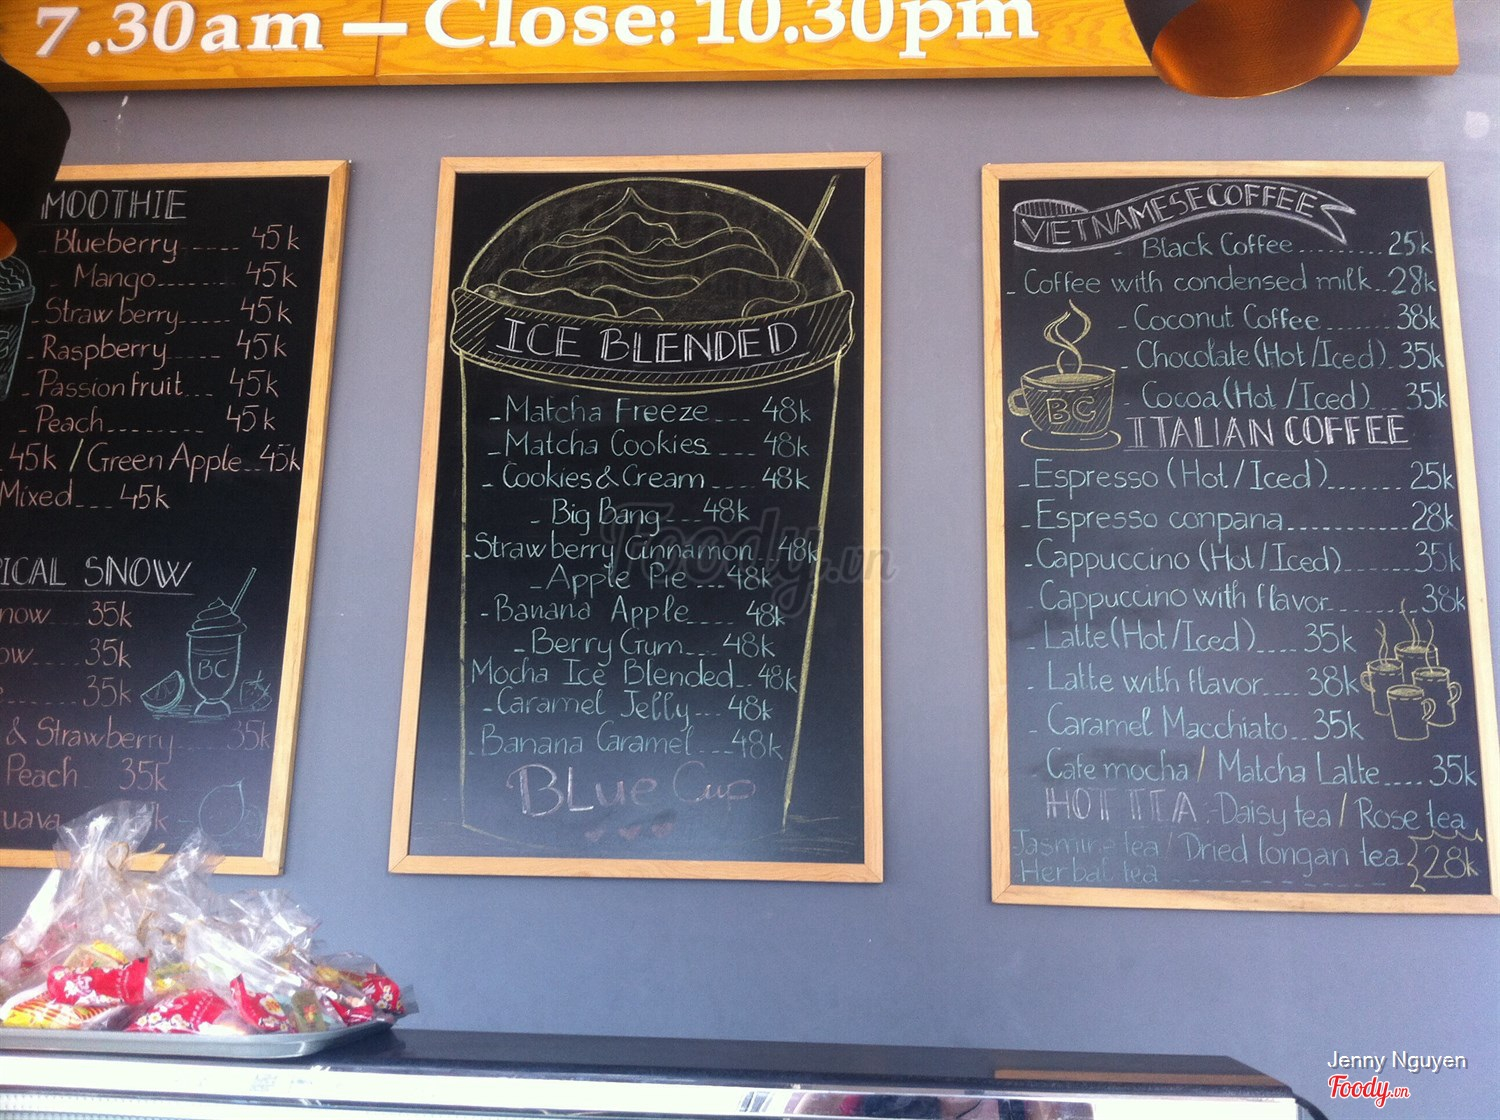 7.30am — Close: 10.30pm
MOOTHIE
- Blueberry ..... 45k
- Mango..... 45k
- Strawberry..... 45k
- Raspberry..... 45k
- Passion fruit... 45k
- Peach........ 45k
45k / Green Apple..45k
Mixed... 45k
ICAL SNOW
now 35k
ow... 35k
35k
& Strawberry... 35k
Peach 35k
uava
BC
ICE BLENDED
- Matcha Freeze... 48k
- Matcha Cookies... 48k
- Cookies & Cream.... 48k
- Big Bang... 48k
- Strawberry Cinnamon 48k
- Apple Pie... 48k
- Banana Apple.... 48k
- Berry Gum... 48k
Mocha Ice Blended.. 48k
- Caramel Jelly... 48k
- Banana Caramel... 48k
BLue Cup
VIETNAMESE COFFEE
- Black Coffee........ 25k
- Coffee with condensed milk.. 28k
- Coconut Coffee....... 38k
- Chocolate (Hot / Iced). 35k
- Cocoa (Hot / Iced) 35k
BC
ITALIAN COFFEE
- Espresso (Hot / Iced)........ 25k
- Espresso conpana............ 28k
- Cappuccino (Hot / Iced)....... 35k
- Cappuccino with flavor........ 38k
- Latte (Hot / Iced).... 35k
- Latte with flavor.... 38k
- Caramel Macchiato.. 35k
Cafe mocha / Matcha Latte.... 35k
HOT TEA : Daisy tea / Rose tea
Jasmine tea / Dried longan tea 28k
Herbal tea
Foody.vn
Jenny Nguyen
Foody.vn